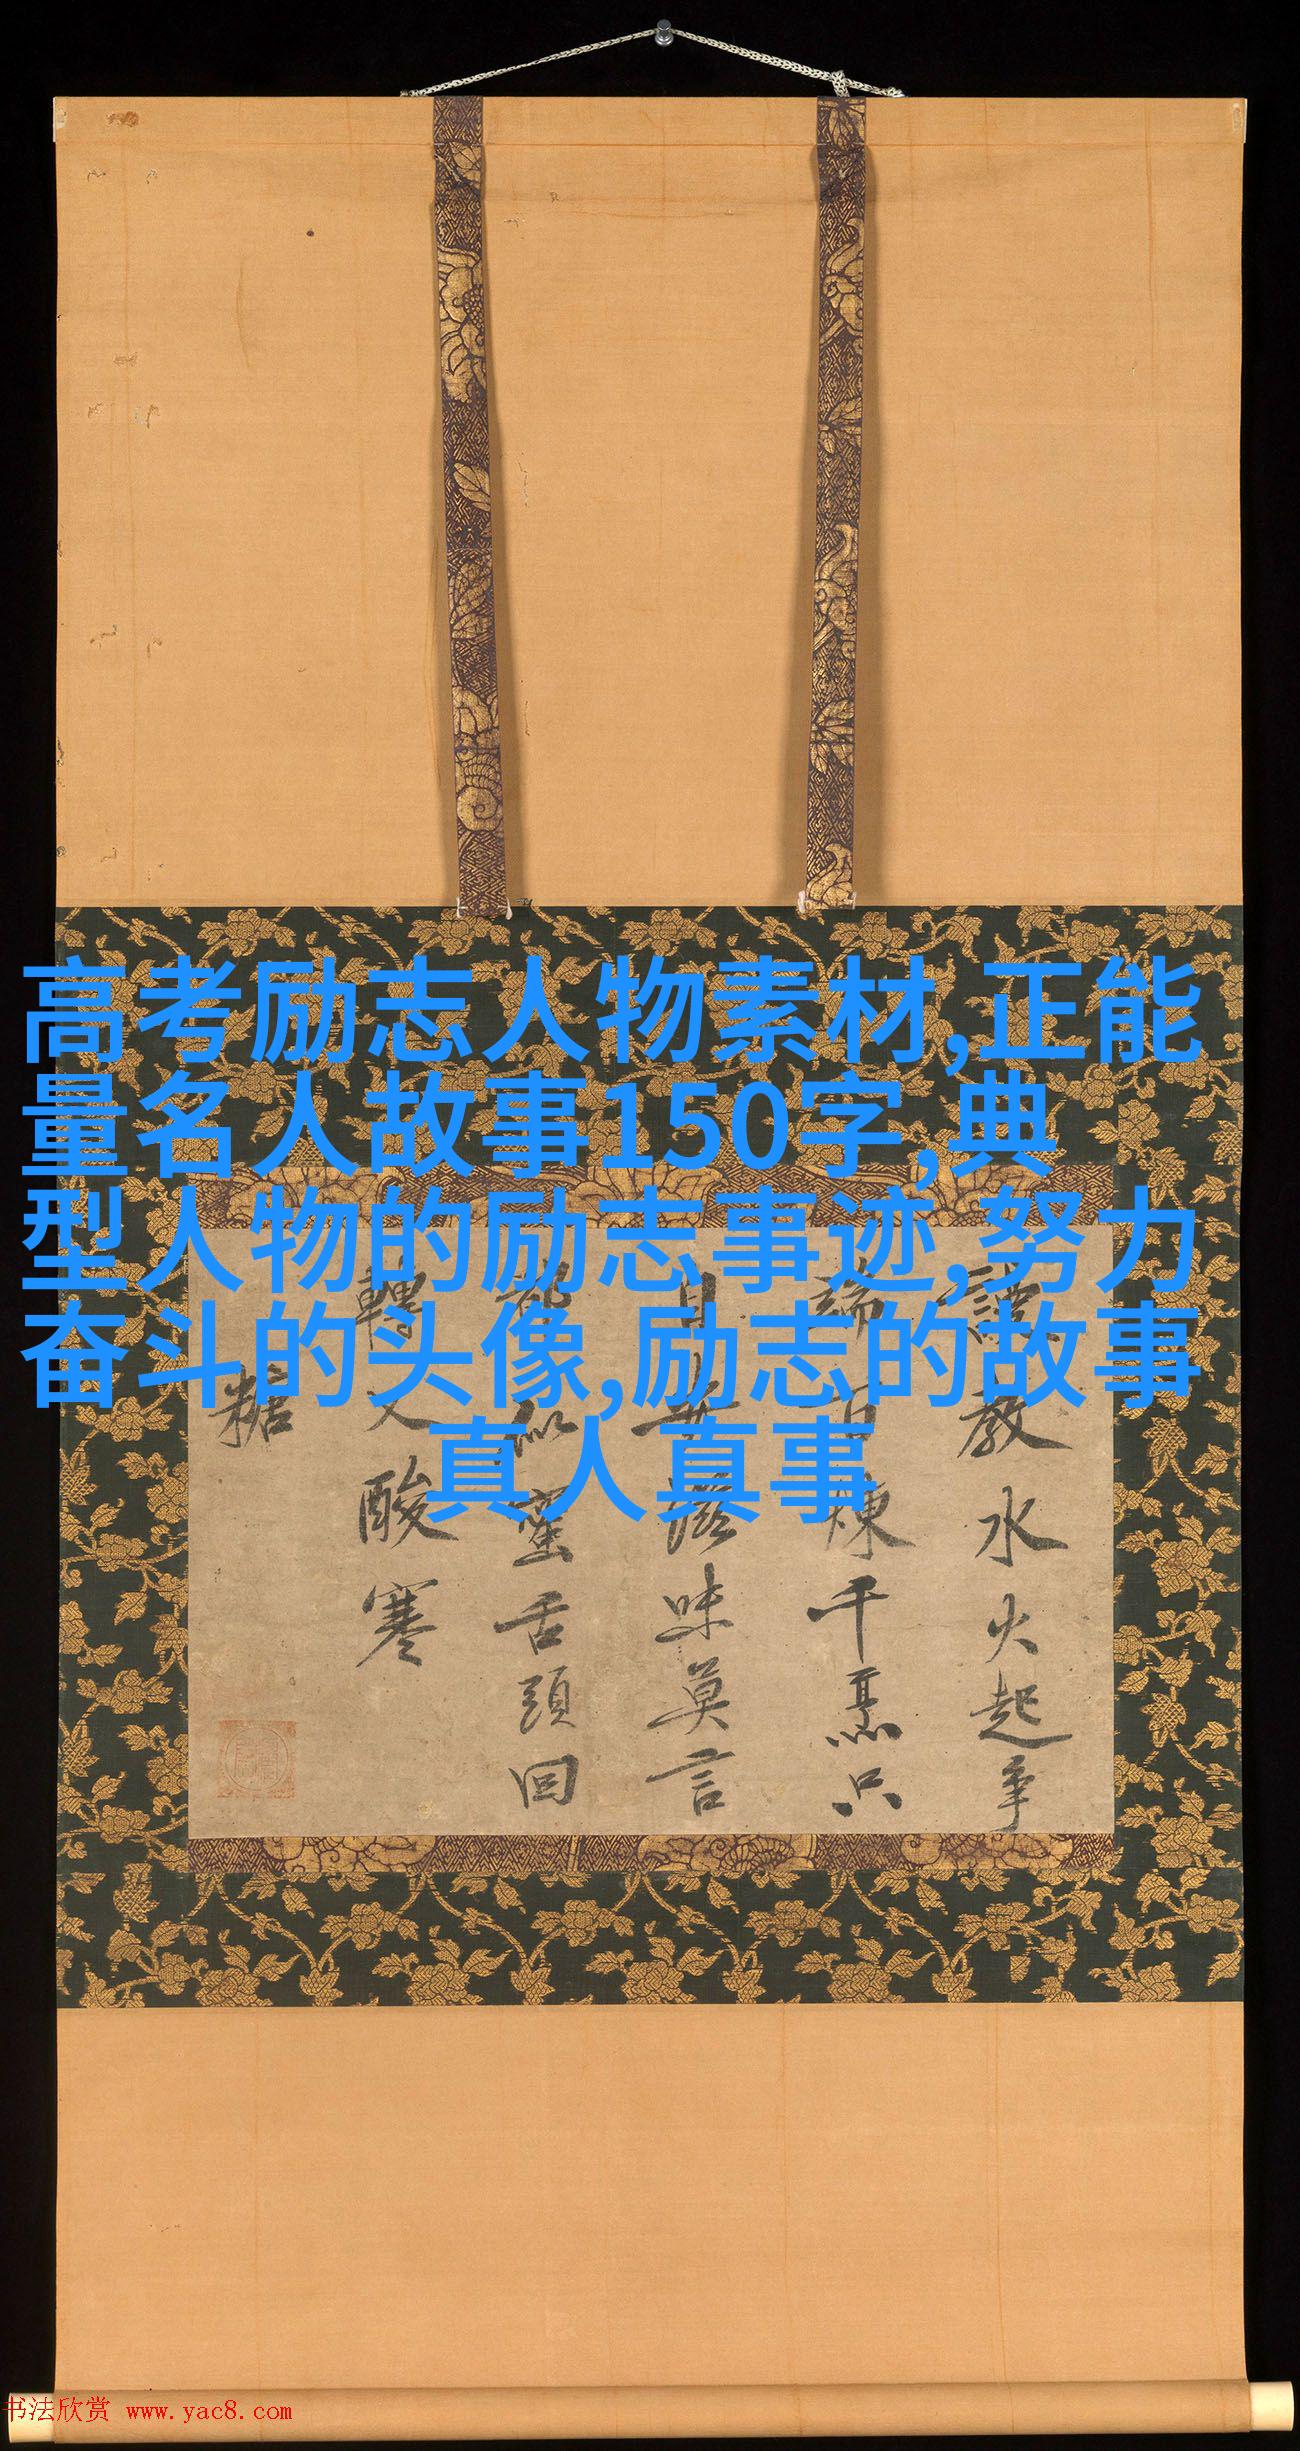 高考励志人物素材,正能
量名人故事150字,典
型人物的励志事迹,努力
奋斗的头像,励志的故事
真人真事
教水火起爭
端百煉千烹只
滋味莫言
似蜜舌頭回
轉又酸寒
糖
书法欣赏 www.yac8.com